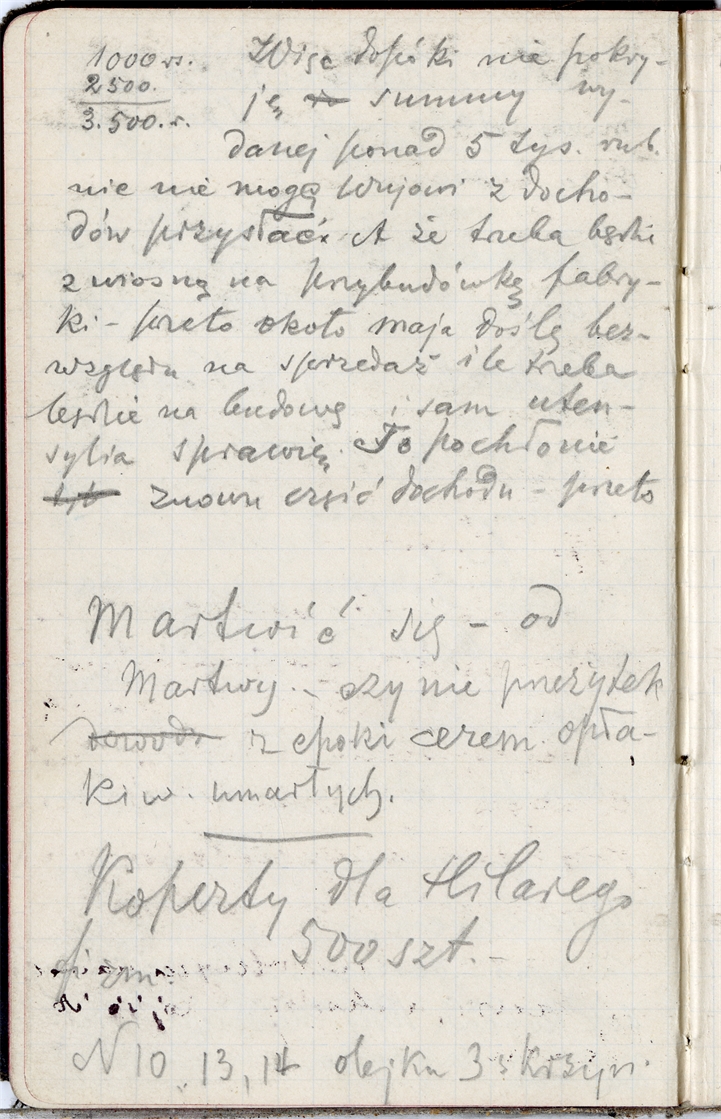 1000 rs.
2500.
3.500. r.
Więc dopóki nie pokry-
ję summy wy-
danej ponad 5 tys. rub.
nic nie mogę Wujowi z docho-
dów przysłać. A że treba będzie
z wiosną na przybudówkę fabry-
ki - przeto około maja doślę bez-
względu na sprzedaż ile treba
będzie na budowę i sam uten-
sylia sprawię. To pochłonie
znowu część dochodu - przeto
Martwić się - od
Martwy. - czy nie przeżytek
z epoki cerem. opła-
kiw. umarłych.
Koperty dla Hilarego
500 szt. -
firm
N 10, 13, 14 olejku 3 skrzyn.